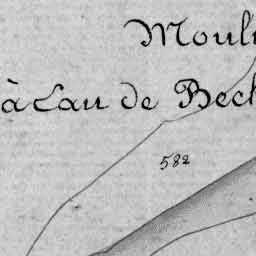 Moul
à Eau de Bech
582